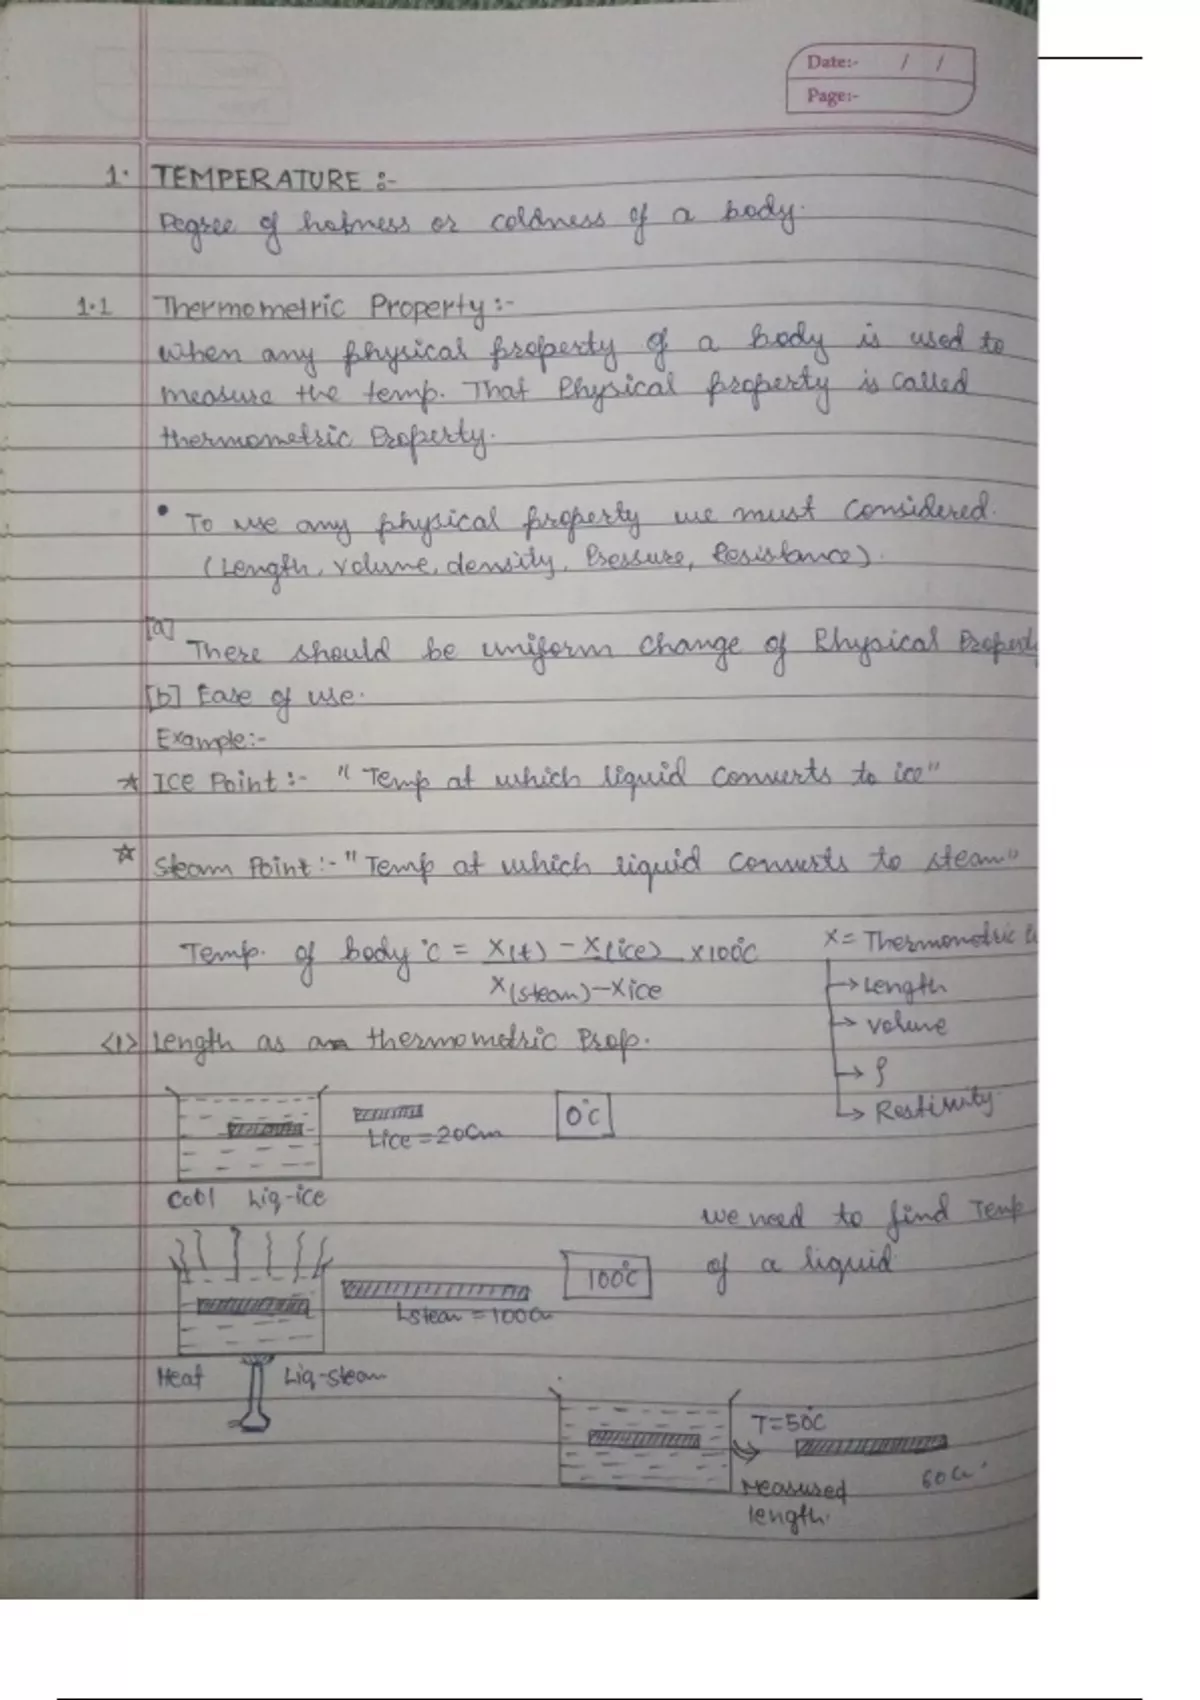 Date:- / /
Page:-
1. TEMPERATURE :-
Degree of hotness or coldness of a body.
1.1 Thermometric Property :-
when any physical property of a body is used to
measure the temp. That Physical property is called
thermometric Property.
• To use any physical property we must Considered.
(Length, volume, density, Pressure, Resistance).
[a] There should be uniform change of Physical Property
[b] Ease of use.
Example:-
☆ ICE Point :- "Temp at which liquid converts to ice"
☆ Steam Point :- "Temp at which liquid converts to steam"
Temp. of body °C = X(t) - X(ice) x100°C
X(steam)-Xice
X = Thermometric
→ Length
→ volume
→ ρ
→ Restivity
<1> Length as an thermometric Prop.
Lice = 20cm
0°C
Cool Liq-ice
we need to find Temp
of a liquid.
100°C
Lsteam = 100cm
Heat Liq-steam
T=50°C
Measured
length.
60cm